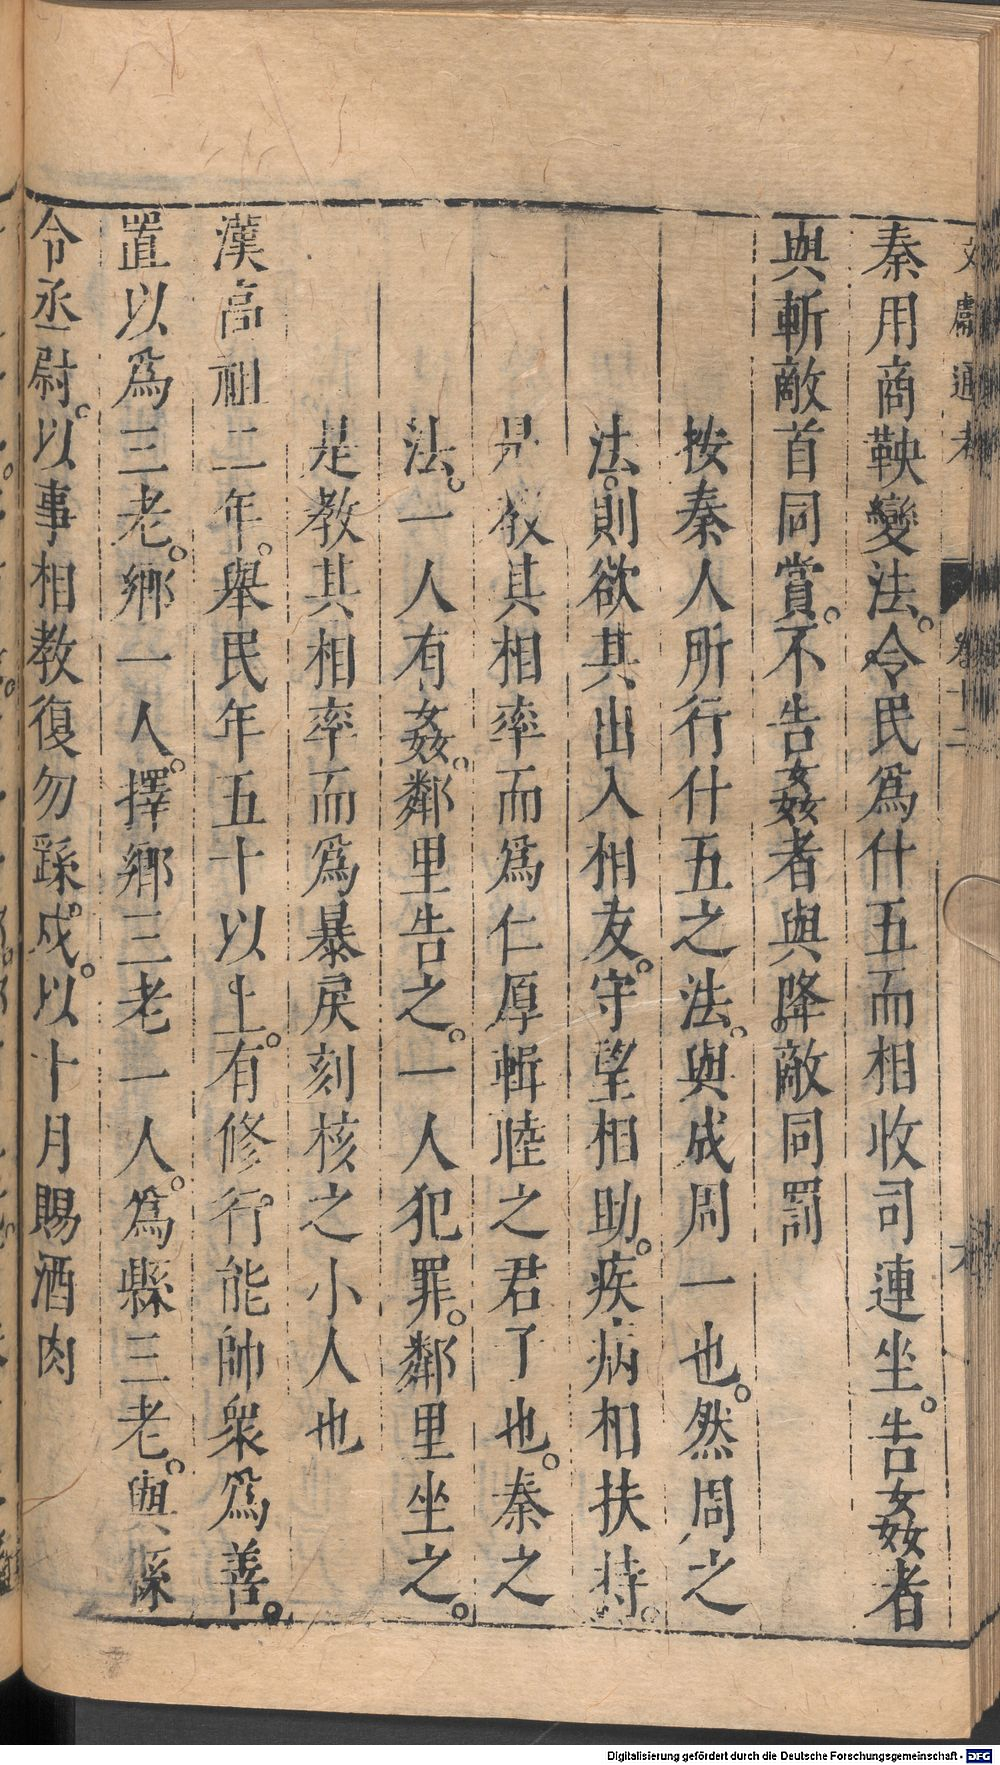 文獻通考 卷十二
秦用商鞅變法。令民爲什五而相收司連坐。告姦者
與斬敵首同賞。不告姦者與降敵同罰
按秦人所行什五之法。與成周一也。然周之
法。則欲其出入相友。守望相助。疾病相扶持。
是教其相率而爲仁厚輯睦之君子也。秦之
法。一人有姦。鄰里告之。一人犯罪。鄰里坐之。
是教其相率而爲暴戾刻核之小人也
漢高祖二年。舉民年五十以上。有修行能帥衆爲善。
置以爲三老。鄉一人。擇鄉三老一人。爲縣三老。與縣
令丞尉。以事相教復勿繇戍。以十月賜酒肉
Digitalisierung gefördert durch die Deutsche Forschungsgemeinschaft - DFG